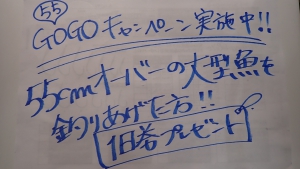 55
GOGOキャンペーン実施中!!
55cmオーバーの大型魚を
釣りあげた方!!
1日券プレゼント